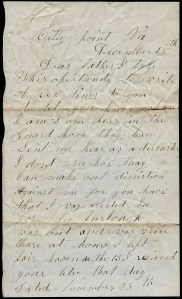 City Point Va
December 18th
Dear Father I take
this opportunity to write
A few lines to you
to let you know
I am here in the
Guard house they have
sent me here as a
I dont see how they
can make out disertion
Against me for you know
that I was
my furlough
was out and I was
there at home I left
fair haven the I received
your letter that day
dated November 28th